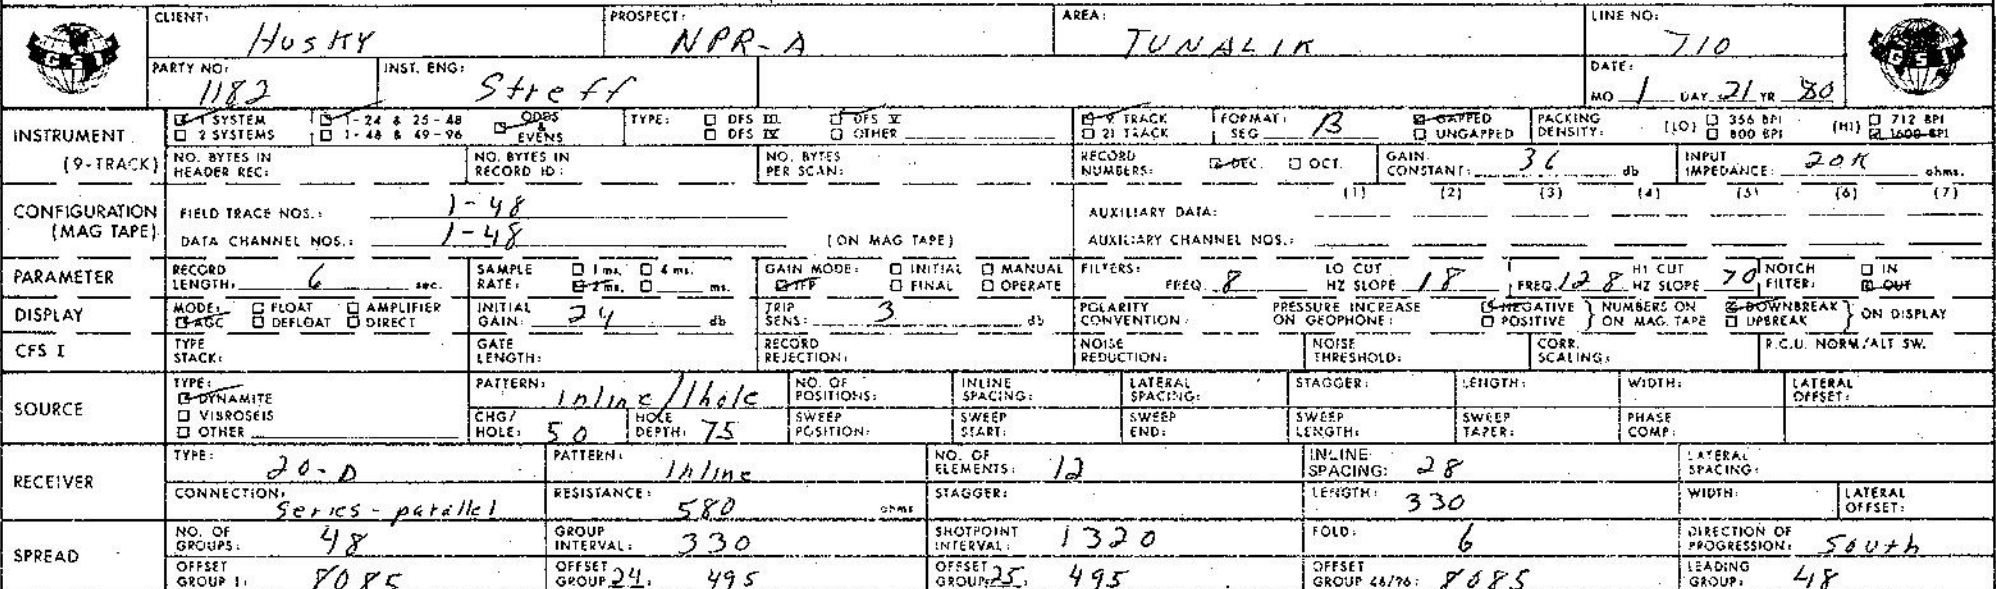 CLIENT: Husky PROSPECT: NPR-A AREA: TUNALIK LINE NO: 710
GSI
PARTY NO: 1182 INST. ENG: Streff DATE: MO 1 DAY 21 YR 80
GSI
INSTRUMENT (9-TRACK)
1 SYSTEM 1-24 & 25-48 ODDS & EVENS TYPE: DFS III DFS V 9 TRACK FORMAT: SEG B GAPPED PACKING DENSITY: (LO) 356 BPI (HI) 712 BPI
2 SYSTEMS 1-48 & 49-96 DFS IV OTHER 21 TRACK UNGAPPED 800 BPI 1600 BPI
NO. BYTES IN HEADER REC: NO. BYTES IN RECORD ID: NO. BYTES PER SCAN: RECORD NUMBERS: DEC. OCT. GAIN CONSTANT: 36 db INPUT IMPEDANCE: 20K ohms.
CONFIGURATION (MAG TAPE)
(1) (2) (3) (4) (5) (6) (7)
FIELD TRACE NOS.: 1-48 AUXILIARY DATA:
DATA CHANNEL NOS.: 1-48 (ON MAG TAPE) AUXILIARY CHANNEL NOS.:
PARAMETER RECORD LENGTH: 6 sec. SAMPLE RATE: 1 ms. 4 ms. 2 ms. ms. GAIN MODE: INITIAL MANUAL IFP FINAL OPERATE FILTERS: FREQ. 8 LO CUT HZ SLOPE 18 FREQ. 128 HI CUT HZ SLOPE 70 NOTCH FILTER: IN OUT
DISPLAY MODE: FLOAT AMPLIFIER AGC DEFLOAT DIRECT INITIAL GAIN: 24 db TRIP SENS: 3 db POLARITY CONVENTION: PRESSURE INCREASE ON GEOPHONE: NEGATIVE POSITIVE } NUMBERS ON MAG. TAPE DOWNBREAK UPBREAK } ON DISPLAY
CFS I TYPE STACK: GATE LENGTH: RECORD REJECTION: NOISE REDUCTION: NOISE THRESHOLD: CORR. SCALING: R.C.U. NORM/ALT SW.
SOURCE TYPE: DYNAMITE VIBROSEIS OTHER
PATTERN: Inline/1hole NO. OF POSITIONS: INLINE SPACING: LATERAL SPACING: STAGGER: LENGTH: WIDTH: LATERAL OFFSET:
CHG/HOLE: 50 HOLE DEPTH: 75 SWEEP POSITION: SWEEP START: SWEEP END: SWEEP LENGTH: SWEEP TAPER: PHASE COMP:
RECEIVER TYPE: 20-D PATTERN: Inline NO. OF ELEMENTS: 12 INLINE SPACING: 28 LATERAL SPACING:
CONNECTION: Series-parallel RESISTANCE: 580 ohms STAGGER: LENGTH: 330 WIDTH: LATERAL OFFSET:
SPREAD NO. OF GROUPS: 48 GROUP INTERVAL: 330 SHOTPOINT INTERVAL: 1320 FOLD: 6 DIRECTION OF PROGRESSION: South
OFFSET GROUP 1: 8085 OFFSET GROUP 24: 495 OFFSET GROUP 25: 495 OFFSET GROUP 48/96: 8085 LEADING GROUP: 48